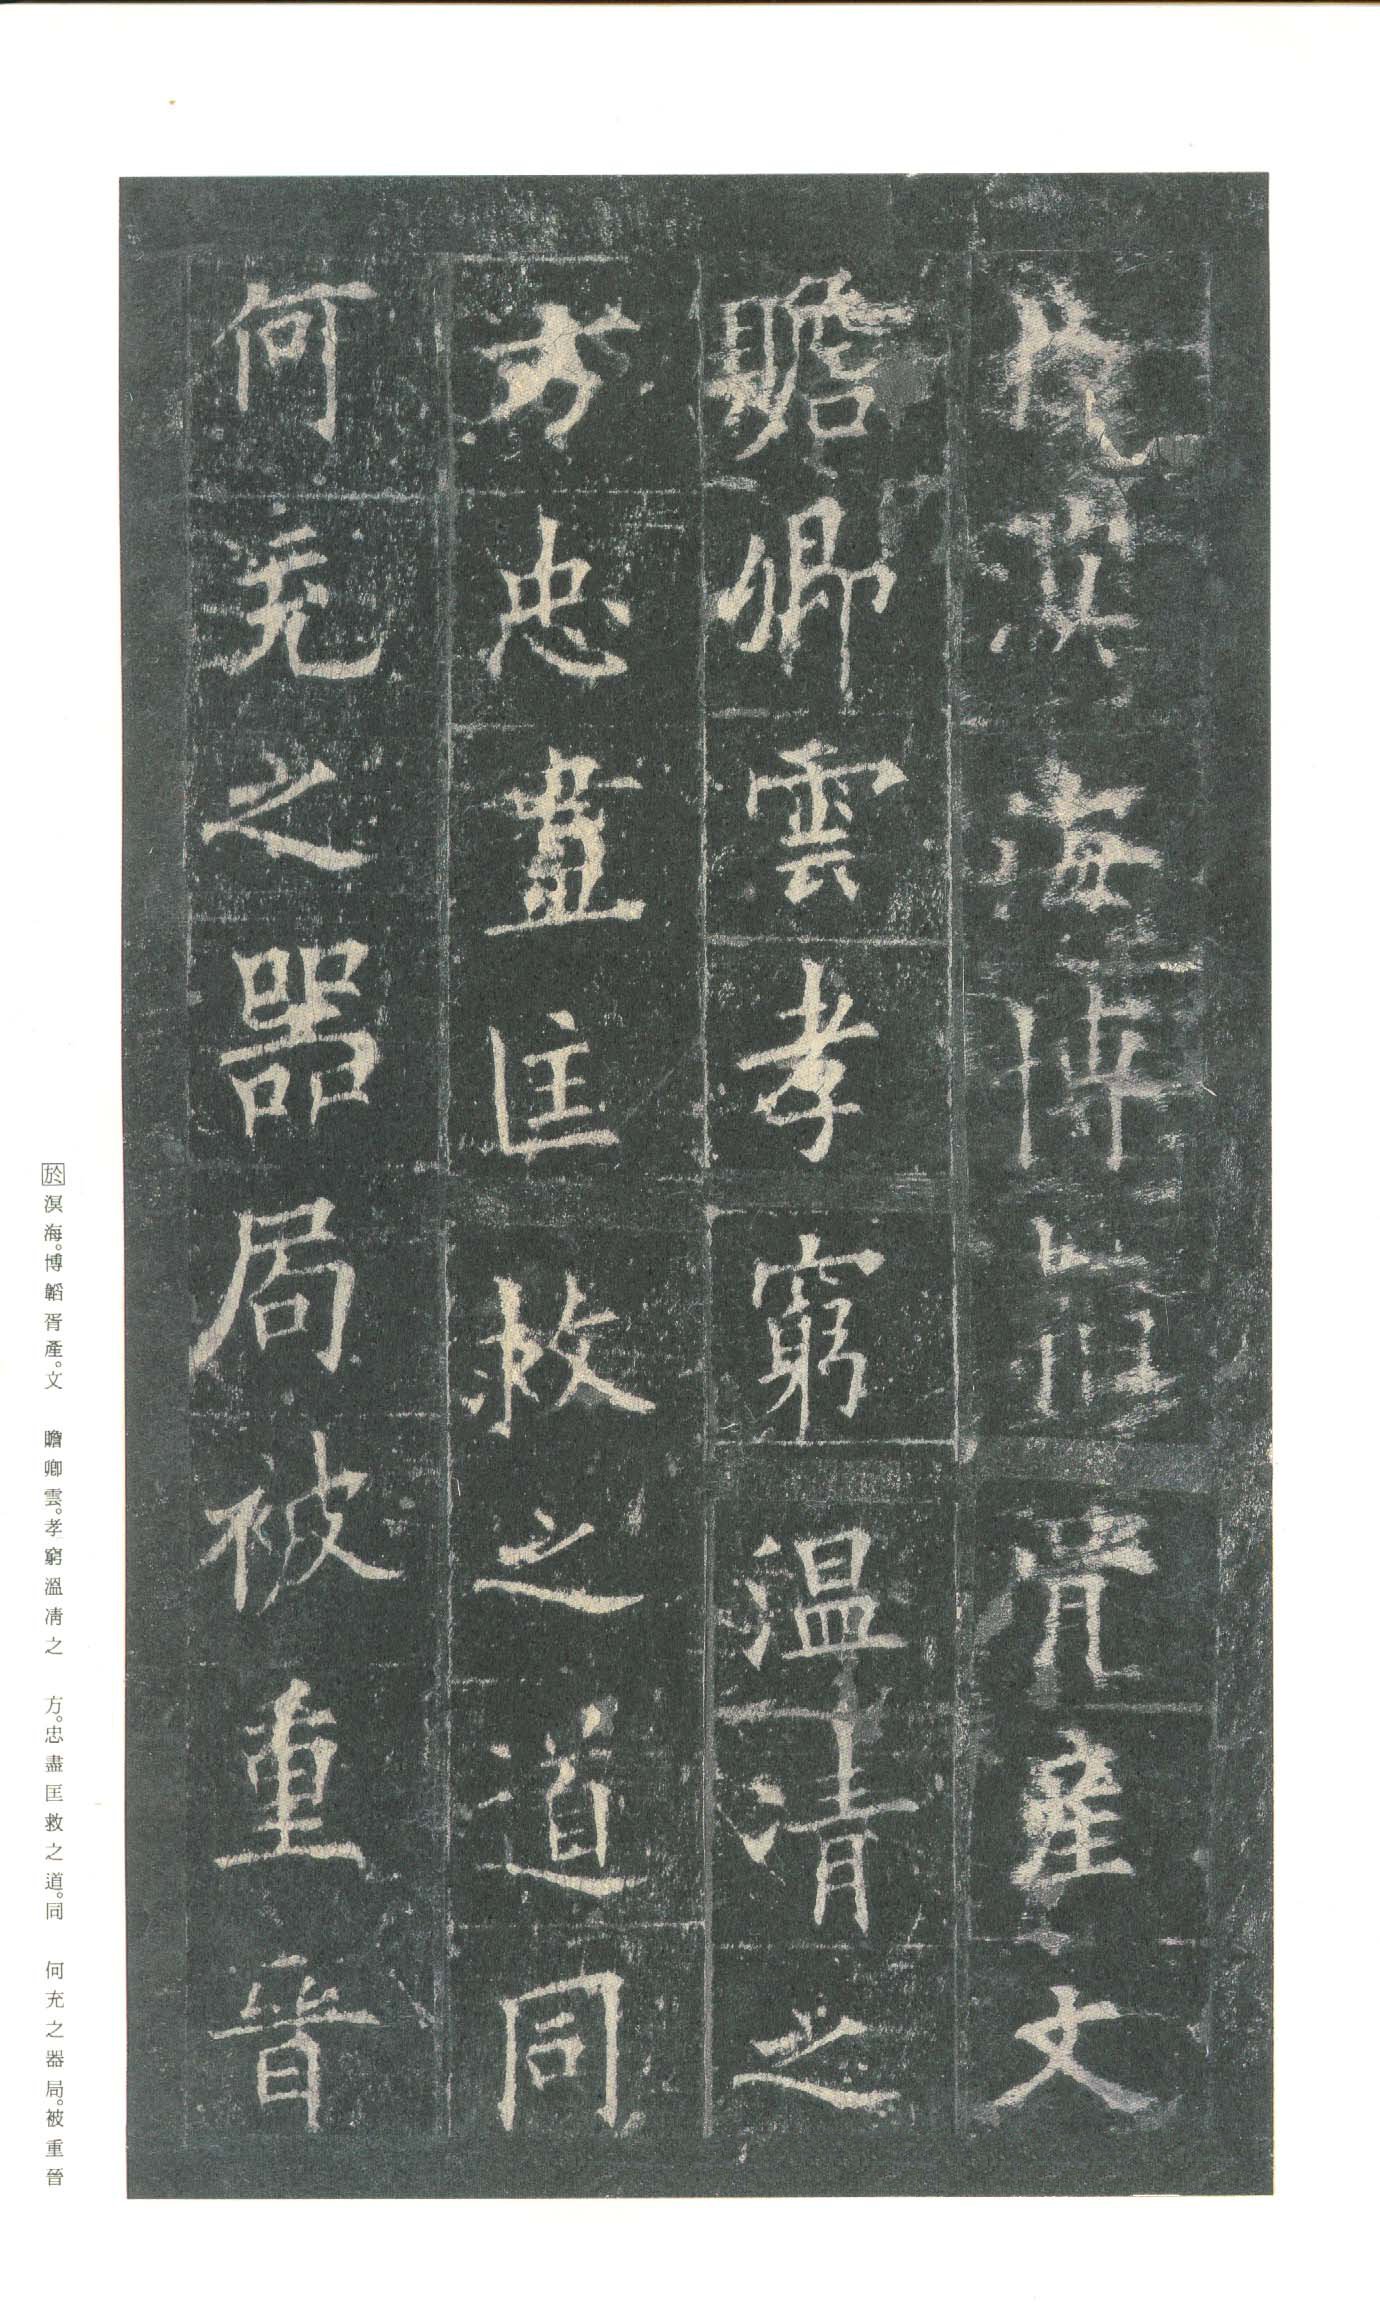 於溟海博韜胥產文
贍卿雲孝窮溫凊之
方忠盡匡救之道同
何充之器局被重晉
於溟海。博韜胥產。文　贍卿雲。孝窮溫凊之　方。忠盡匡救之道。同　何充之器局。被重晉